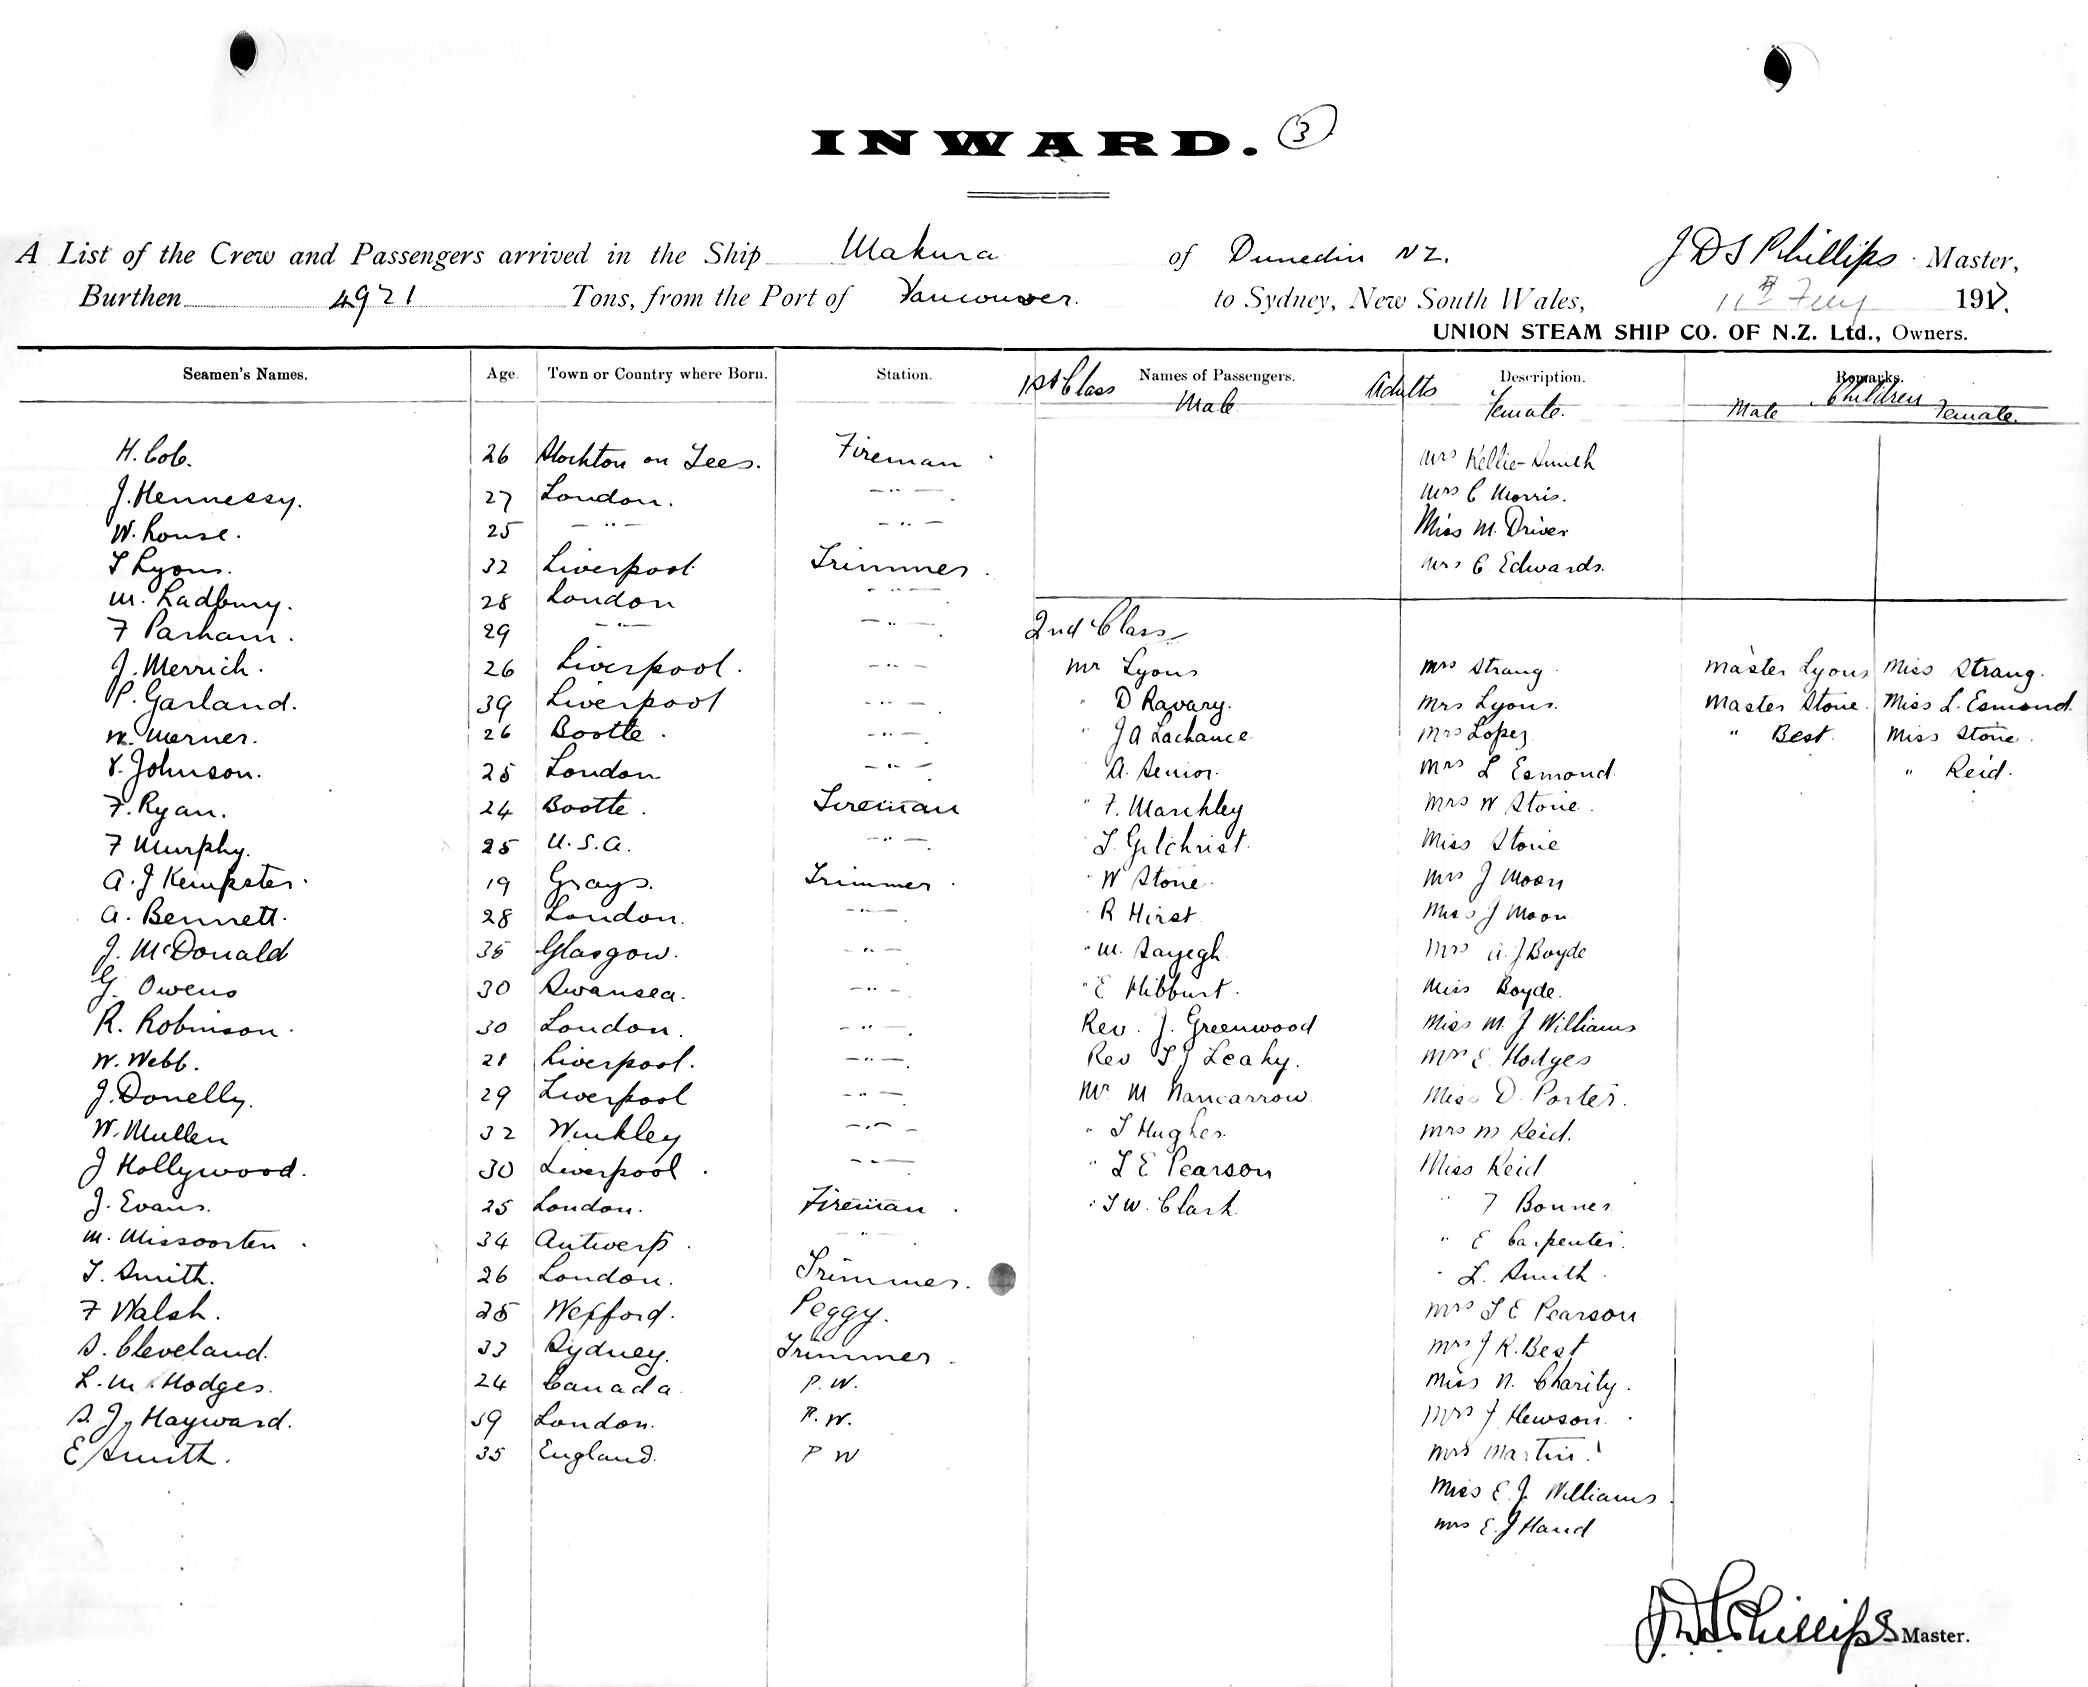 INWARD. 3
A List of the Crew and Passengers arrived in the Ship Makura of Dunedin NZ. J D S Phillips Master,
Burthen 4921 Tons, from the Port of Vancouver. to Sydney, New South Wales, 11th 1917.
UNION STEAM SHIP CO. OF N.Z. Ltd., Owners.
Seamen's Names. Age. Town or Country where Born. Station. 1st Class Names of Passengers. Adults Description. Remarks. Children
Male Female. Male Female.
H. Cob. 26 Stockton on Tees. Fireman Mrs Kellie-Smith
J. Hennessy. 27 London. - " - Mrs C Morris.
W. Rouse. 25 - " - - " - Miss M. Driver
T Lyons. 32 Liverpool Trimmer. Mrs C Edwards.
M. Ladbury. 28 London - " -
F Parham. 29 - " - - " - 2nd Class
J. Merrich. 26 Liverpool. - " - Mr Lyons Mrs Strang Master Lyons Miss Strang.
P. Garland. 39 Liverpool - " - " D Ravary. Mrs Lyons. Master Stone. Miss L. Esmond.
W. Merner. 26 Bootle. - " - " J A Lachance Mrs Lopez " Best Miss Stone.
V. Johnson. 25 London - " - A. Senior. Mrs L Esmond. " Reid.
F. Ryan. 24 Bootle. Fireman " F. Markhley Mrs W Stone.
F Murphy. 25 U.S.A. - " - " T. Gilchrist. Miss Stone
A. J Kempster. 19 Grays. Trimmer. " W Stone. Mrs J Moon
A. Bennett. 28 London. - " - " R Hirst Miss J Moon
J. McDonald 35 Glasgow. - " - " M. Sayegh Mrs A. J Boyde
G. Owens 30 Swansea. - " - " E Hibburt. Miss Boyde.
R. Robinson. 30 London. - " - Rev. J. Greenwood Miss M. J Williams
W. Webb. 21 Liverpool. - " - Rev T J Leahy. Mrs E. Hodges
J. Donelly. 29 Liverpool - " - Mr M Nancarrow Miss D. Porter.
W. Mullen 32 Winkley - " - " T Hughes. Mrs M Reid.
J Hollywood. 30 Liverpool. - " - " T E Pearson Miss Reid
J. Evans. 25 London. Fireman. " T W. Clark " F Bonner
M. Missoorten. 34 Antwerp. - " - " E Carpenter.
T. Smith. 26 London. Trimmer. " L. Smith.
F Walsh. 25 Wexford. Peggy. Mrs T E Pearson
S. Cleveland. 33 Sydney. Trimmer. Mrs J R. Best
L. M. Hodges. 24 Canada. P. W. Miss N. Charity.
S. J. Hayward. 39 London. P. W. Mrs J Hewson.
E Smith. 35 England. P W Mrs Martin.
Miss E. J. Williams.
Mrs E. J Hand
J D S Phillips Master.